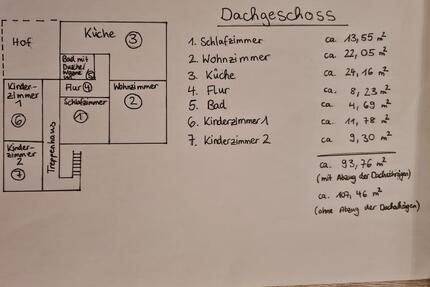 Dachgeschoss
Hof
Küche
3
Bad mit
Dusche/
Wanne
WC
5
Flur 4
Schlafzimmer
1
Wohnzimmer
2
Kinder-
zimmer
1
6
Kinder-
zimmer
2
7
Treppenhaus
1. Schlafzimmer ca. 13,55 m²
2. Wohnzimmer ca. 22,05 m²
3. Küche ca. 24,16 m²
4. Flur ca. 8,23 m²
5. Bad ca. 4,69 m²
6. Kinderzimmer 1 ca. 11,78 m²
7. Kinderzimmer 2 ca. 9,30 m²
ca. 93,76 m²
(mit Abzug der Dachschrägen)
ca. 107,46 m²
(ohne Abzug der Dachschrägen)